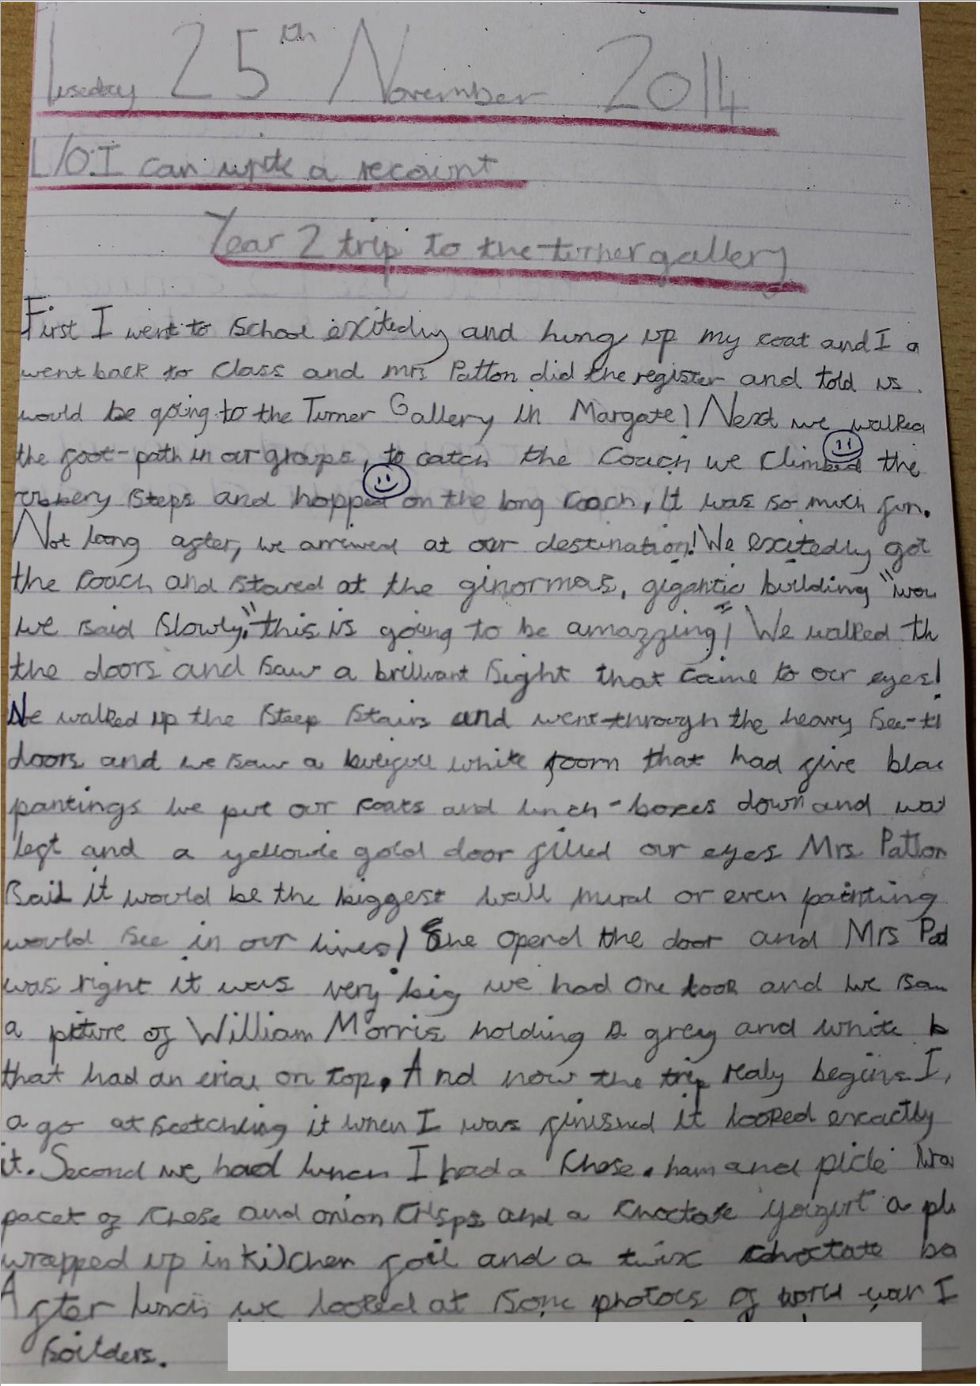 Tuseday 25th November 2014
L/O.I can write a recount
Year 2 trip to the turner gallery
First I went to School exitedly and hung up my coat and I a
went back to Class and mrs Patton did the register and told us
would be going to the Turner Gallery in Margate! Next we walked
the foot-path in our groups, to catch the Coach we climbed the
rubbery Steps and hopped on the long coach, It was so much fun.
Not long after, we arrived at our destination! We excitedly got
the coach and stared at the ginormas, gigantic building "wow
we said Slowly, "this is going to be amazzing"! We walked th
the doors and saw a brilliant Sight that came to our eyes!
We walked up the steep stairs and went through the heavy see-th
doors and we saw a white room that had five blac
pantings we put our coats and lunch-boxes down and
left and a gold door filled our eyes Mrs Patton
Said it would be the biggest wall mural or even painting
would see in our lives! She opend the door and Mrs Pat
was right it was very big we had one look and we saw
a picture of William Morris holding a grey and white b
that had an on top. And now the trip realy begins I,
a go at scetching it when I was finished it looked exactly
it. Second we had lunch I had a Chese. ham and picle
pacet of chese and onion crisps and a yoigurt a
wrapped up in kitchen foil and a twix ba
After lunch we looked at some photos of world war I
Soilders.